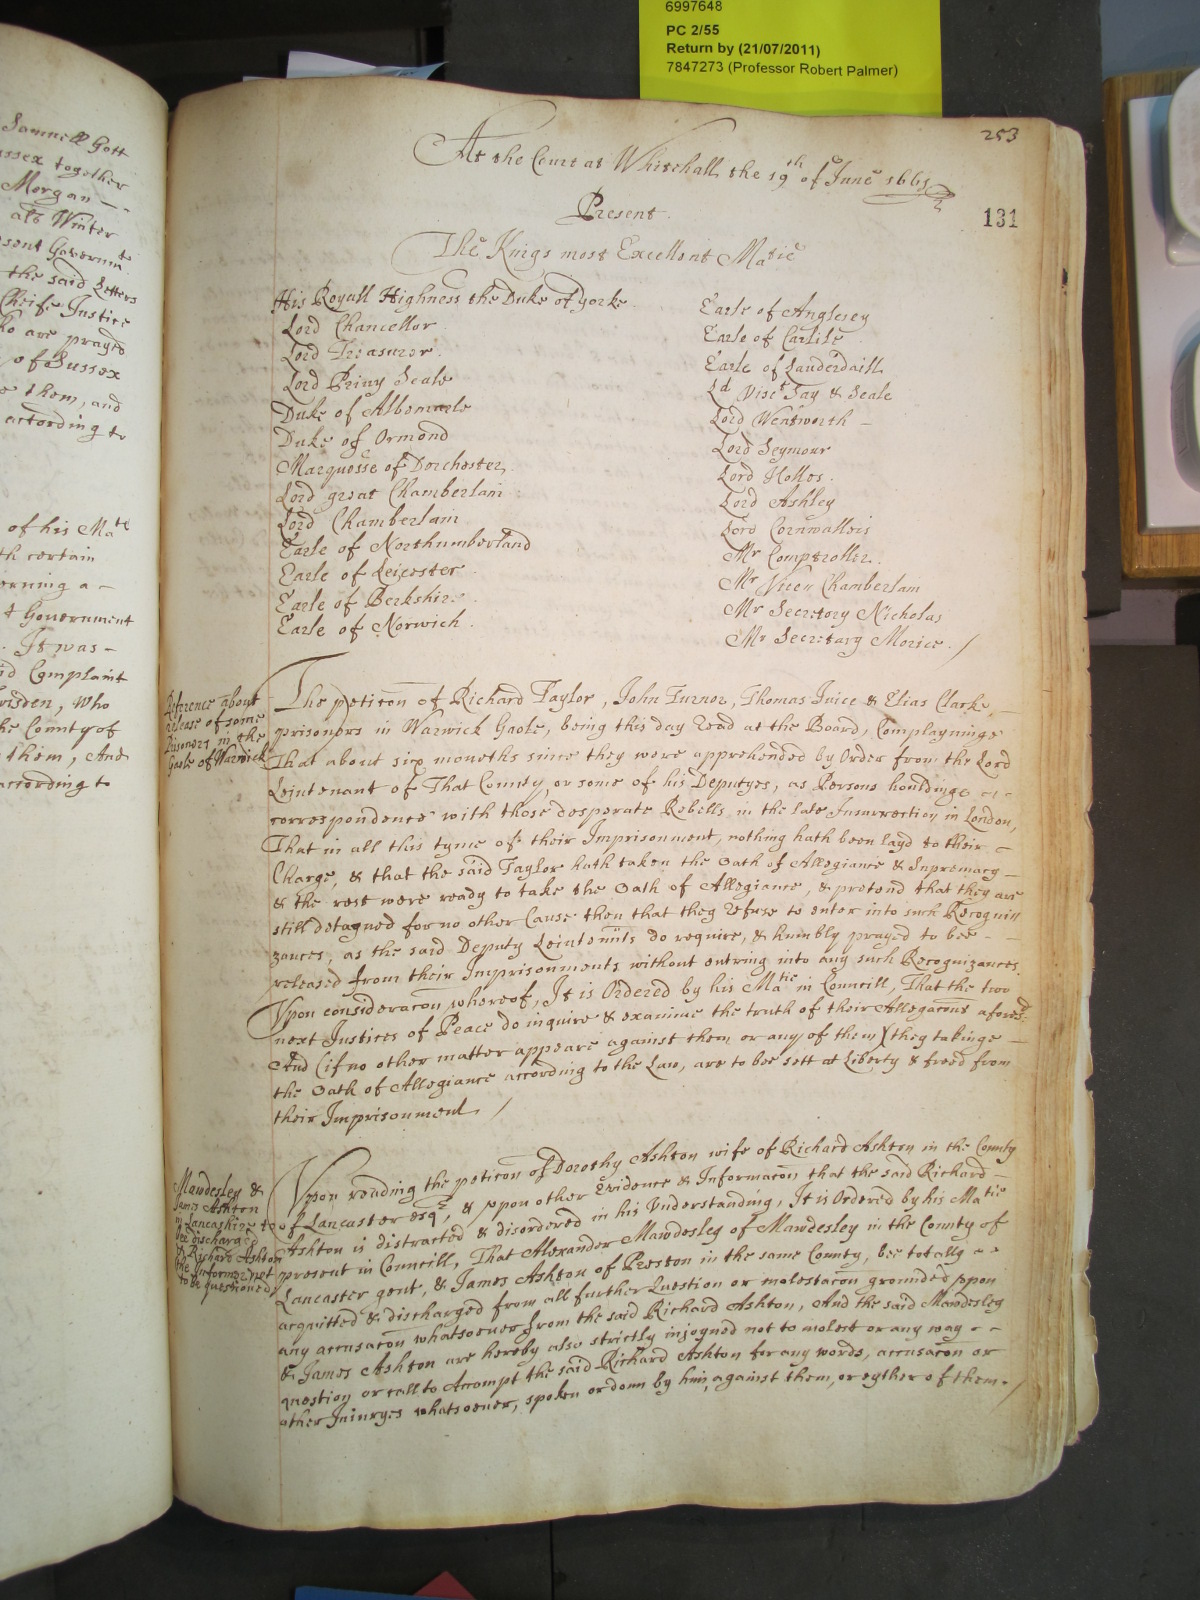 6997648
PC 2/55
Return by (21/07/2011)
7847273 (Professor Robert Palmer)
Samuell Gott
ssex together
Morgan
als Winter
sent Governmt
the said Letters
Cheife Justice
ho are prayed
of Sussex
e them, and
according to
of his Matie
th certain
erning a
t Government
. It was
id Complaint
Who
he County of
them, And
according to
253
131
At the Court at Whitehall the 19th of June 1661
Present
The Kings most Excellent Matie
His Royall Highness the Duke of Yorke
Lord Chancellor
Lord Treasurer
Lord Privy Seale
Duke of Albemarle
Duke of Ormond
Marquesse of Dorchester
Lord great Chamberlain
Lord Chamberlain
Earle of Northumberland
Earle of Leicester
Earle of Berkshire
Earle of Norwich
Earle of Anglesey
Earle of Carlile
Earle of Lauderdaill
Ld Visct Say & Seale
Lord Wentworth
Lord Seymour
Lord Hollos
Lord Ashley
Lord Cornwallis
Mr Comptroller
Mr Vice Chamberlain
Mr Secretary Nicholas
Mr Secretary Morice
Reference about
release of some
Prisoners in the
Gaole of Warwick
The peticon of Richard Taylor, John Turnor, Thomas Juice & Elias Clarke,
prisoners in Warwick Gaole, being this day read at the Board, Complayninge
That about six moneths since they were apprehended by Order from the Lord
Leiutenant of That County, or some of his Deputyes, as Persons houldinge
correspondence with those desperate Rebells in the late Insurrection in London,
That in all this tyme of their Imprisonment, nothing hath been layd to their
Charge, & that the said Taylor hath taken the Oath of Allegiance & Supremacy
& the rest were ready to take the Oath of Allegiance, & pretend that they are
still detayned for no other Cause then that they refuse to enter into such Recogni
zances, as the said Deputy Leiutennts do require, & humbly prayed to bee
released from their Imprisonments without entring into any such Recognizances
Upon consideracon whereof, It is Ordered by his Matie in Councill, That the two
next Justices of Peace do inquire & examine the truth of their Allegacons aforesd
And (if no other matter appeare against them or any of them) they takinge
the Oath of Allegiance according to the Law, are to bee sett at Liberty & freed from
their Imprisonment
Mawdesley &
James Ashton
in Lancashire to
bee discharged
& Richard Ashton
the Informer not
to be questioned
Upon reading the peticon of Dorothy Ashton wife of Richard Ashton in the County
of Lancaster esqr, & upon other Evidence & Informacon that the said Richard
Ashton is distracted & disordered in his Understanding, It is Ordered by his Matie
present in Councill, That Alexander Mawdesley of Mawdesley in the County of
Lancaster gent, & James Ashton of Preston in the same County, bee totally
acquitted & discharged from all further Question or molestacon grounded upon
any accusacon whatsoever from the said Richard Ashton, And the said Mawdesley
& James Ashton are hereby also strictly injoyned not to molest or any way
question or call to Accompt the said Richard Ashton for any words, accusacon or
other Iniuryes whatsoever, spoken or donn by him against them, or eyther of them.